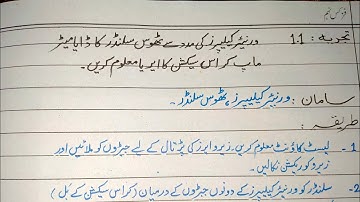 تجربہ : 1.1 ورنیئر کیلیپرز کی مدد سے ٹھوس سلنڈر کا ڈایا میٹر
ماپ کر اس سیکشن کا ایریا معلوم کریں۔
سامان : ورنیئر کیلیپرز ، ٹھوس سلنڈر۔
طریقہ :
1- لیسٹ کاؤنٹ معلوم کریں۔ زیرو ایرر کی پڑتال کے لیے جبڑوں کو ملائیں اور
زیرو کوریکشن نکالیں۔
2- سلنڈر کو ورنیئر کیلیپرز کے دونوں جبڑوں کے درمیان (کراس سیکشن کے بل)